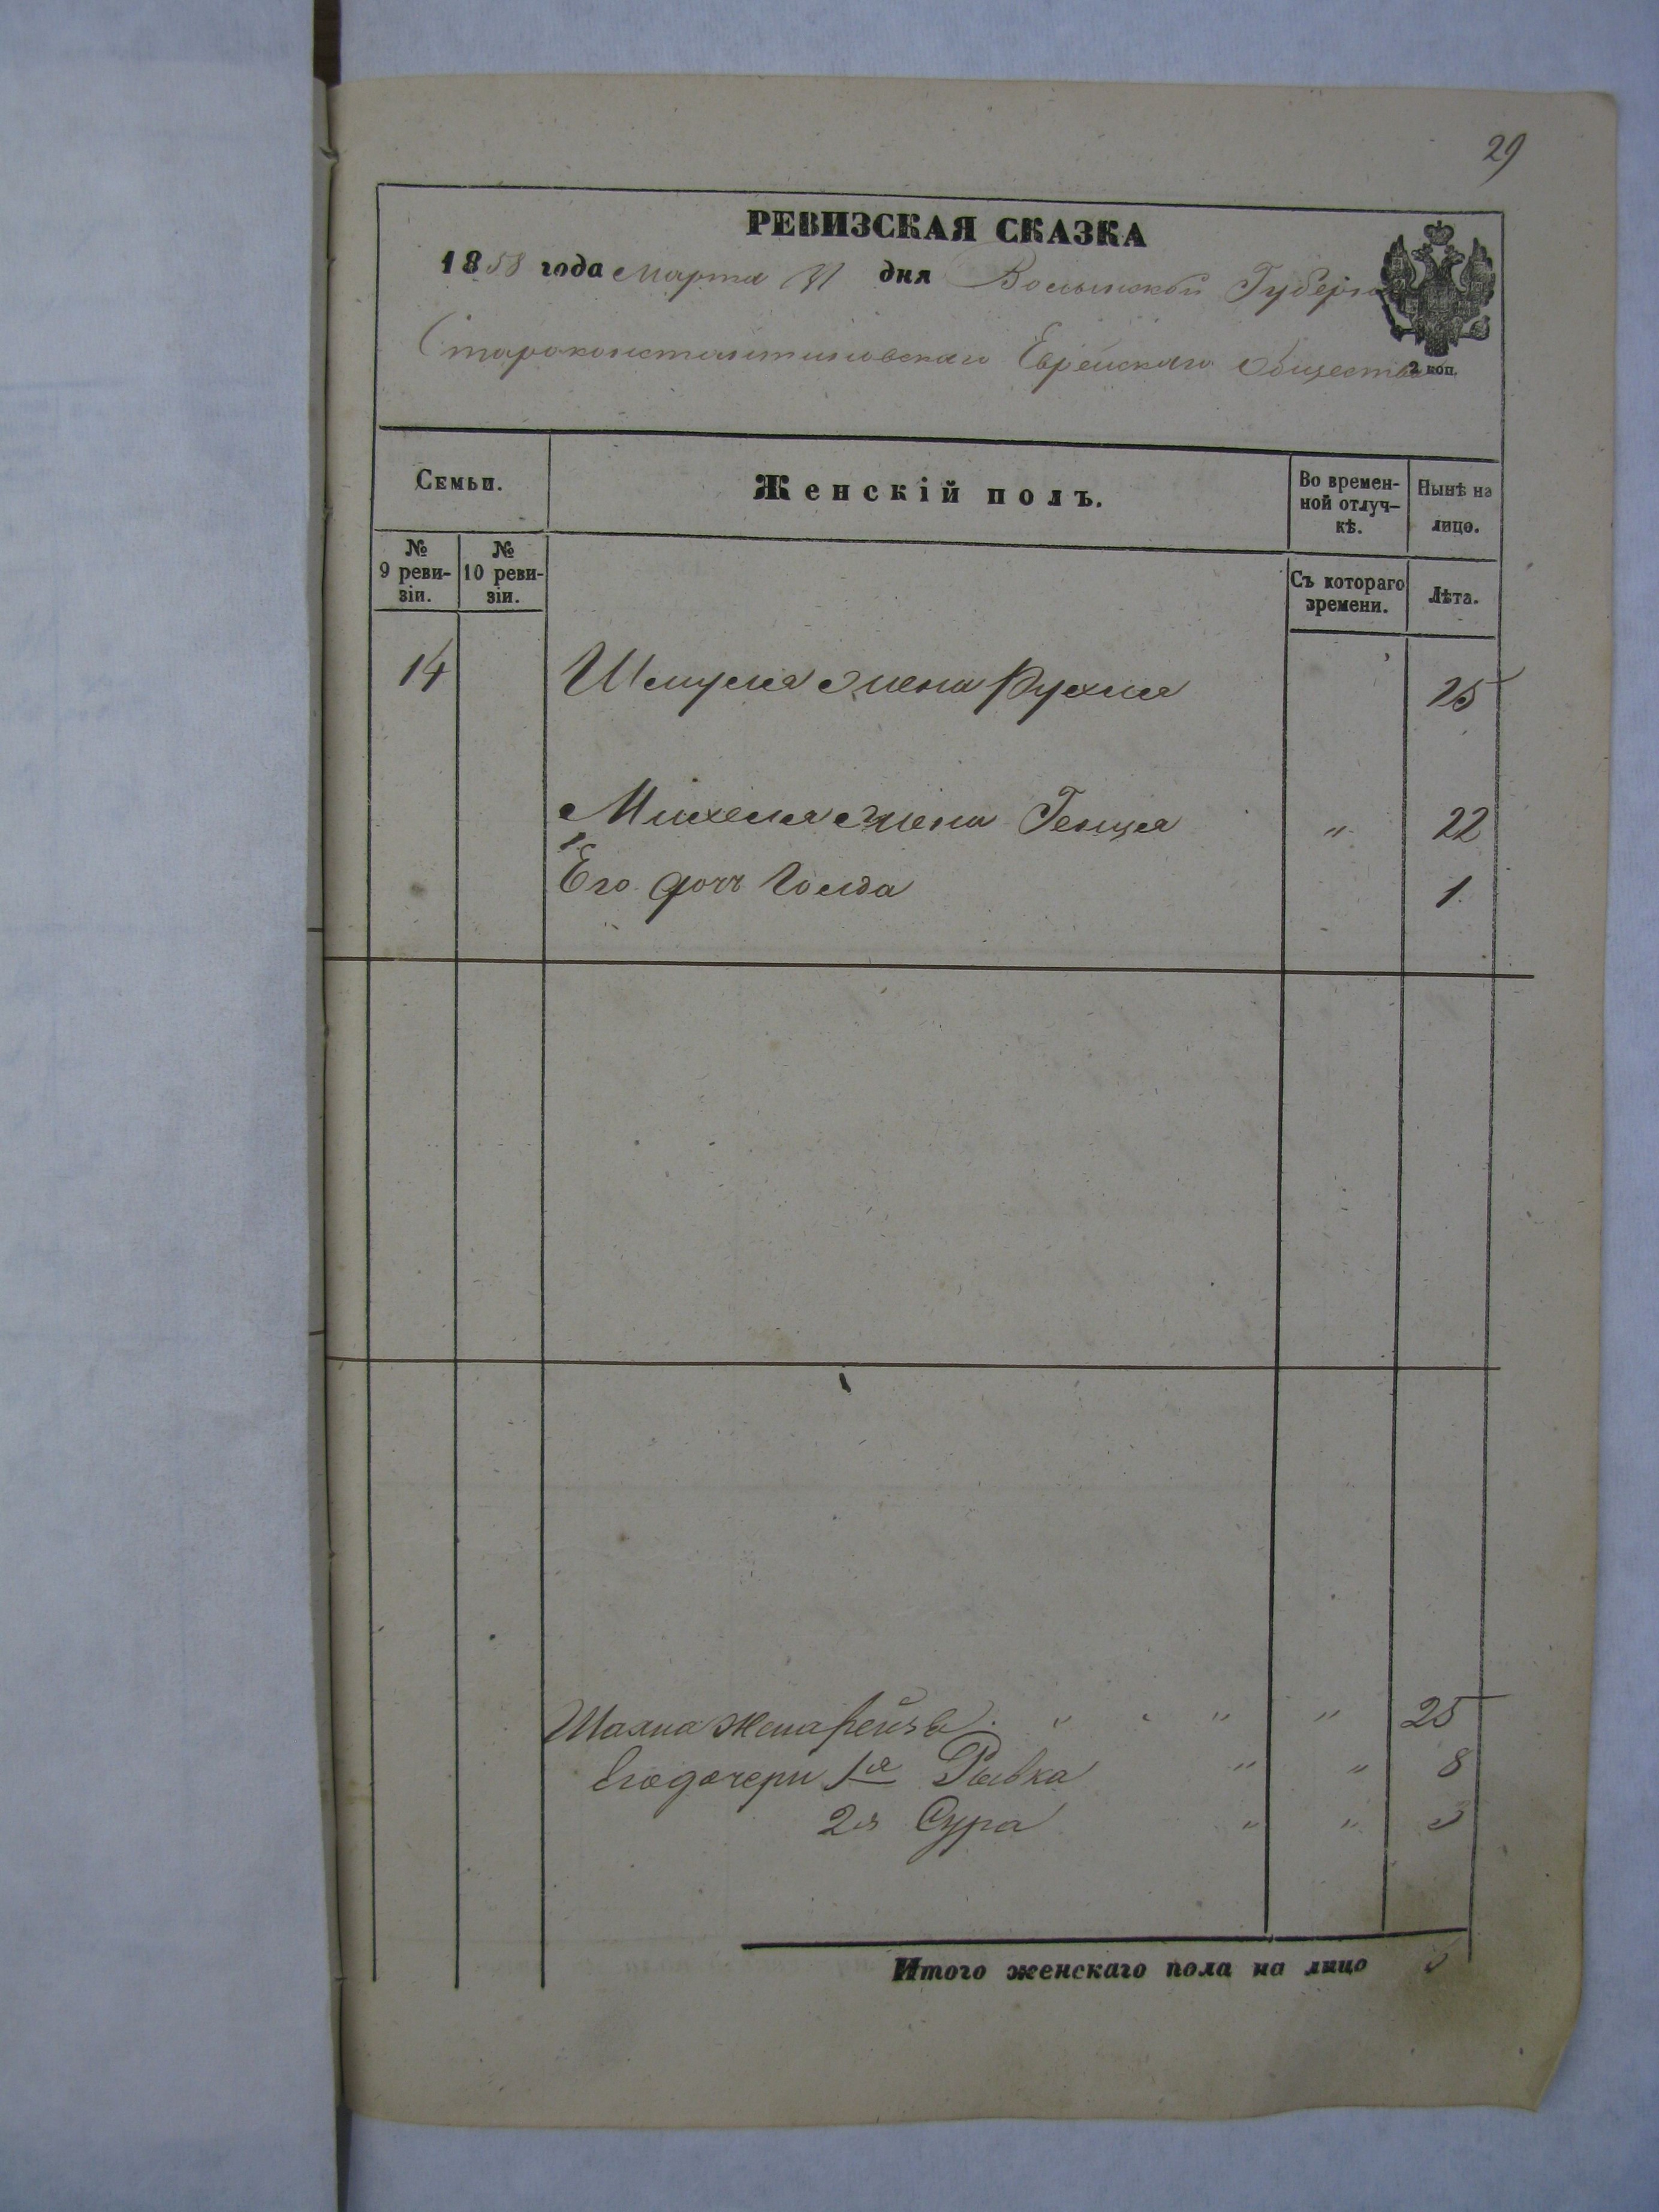 29
РЕВИЗСКАЯ СКАЗКА
1858 года Марта дня Волынской Губерніи
Староконстантиновскаго Еврейскаго Общества
2 коп.
Семьи.
Женскій полъ.
Во времен-
ной отлуч-
кѣ.
Нынѣ на
лицо.
№
9 реви-
зіи.
№
10 реви-
зіи.
Съ котораго
времени.
Лѣта.
14 Шмуля жена Рухля 25
Михеля жена Генця " 22
Его дочь Голда 1
Шахна жена Рейзя " " " " 25
Его дочери 1я Рывка " " 8
2я Сура " "
Итого женскаго пола на лицо